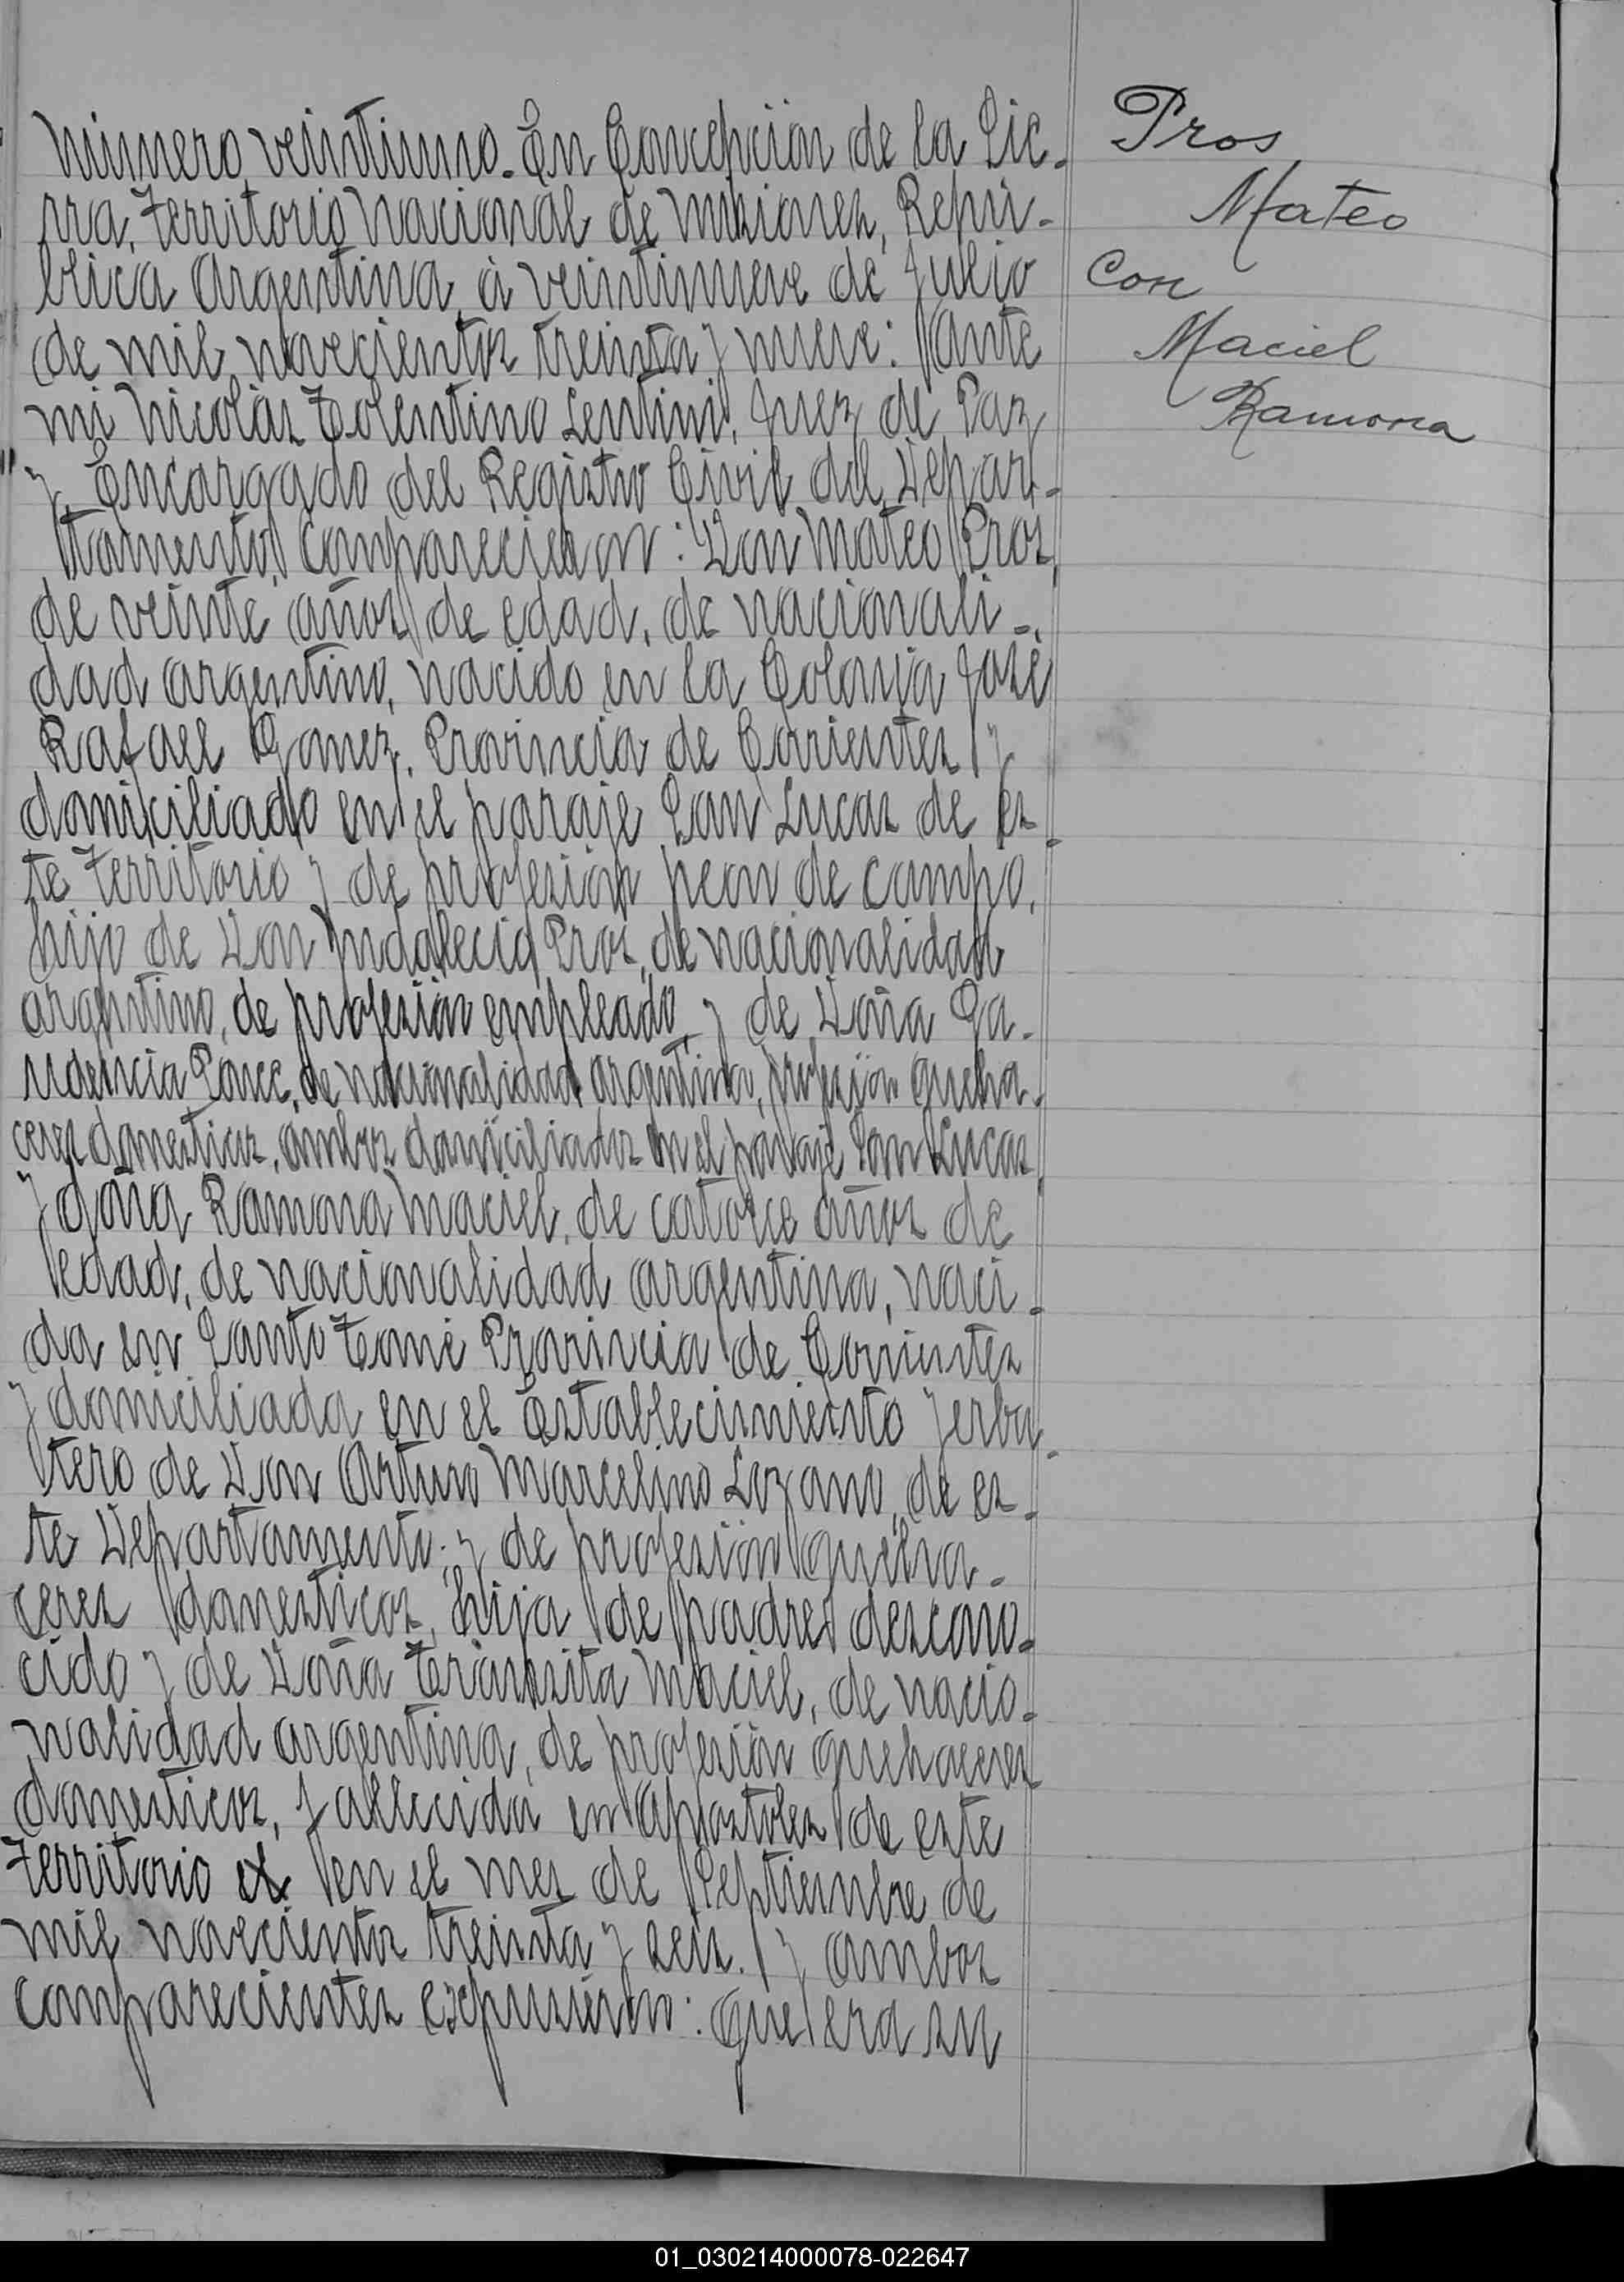 Número veintiuno. En Concepción de la Sie-
rra, Territorio Nacional de Misiones, Repú-
blica Argentina, à veintinueve de Julio
de mil novecientos treinta y nueve: ante
mi Nicolás Tolentino Lentini, Juez de Paz
y Encargado del Registro Civil del Depar-
tamento, comparecieron: Don Mateo Pros,
de veinte años de edad, de nacionali-
dad argentino, nacido en la Colonia José
Rafael Gomez, Provincia de Corrientes y
domiciliado en el paraje San Lucas de es-
te Territorio y de profesión peon de campo,
hijo de Don Indalecio Pros, de nacionalidad
argentino, de profesión empleado y de Doña Ga-
udencia Ponce, de nacionalidad argentina, profesión queha-
ceres domesticos, ambos domiciliados en el paraje San Lucas
y doña Ramona Maciel, de catorce años de
edad, de nacionalidad argentina, naci-
da en Santo Tomé Provincia de Corrientes
y domiciliada en el Establecimiento yerba-
tero de Don Arturo Marcelino Lozano, de es-
te Departamento; y de profesión queha-
ceres domesticos, hija de padre descono-
cido y de Doña Tránsita Maciel, de nacio-
nalidad argentina, de profesión quehaceres
domesticos, fallecida en Apostoles de este
Territorio el en el mes de Septiembre de
mil novecientos treinta y seis. y ambos
comparecientes expusieron: Que era su
Pros
Mateo
Con
Maciel
Ramona
01_030214000078-022647